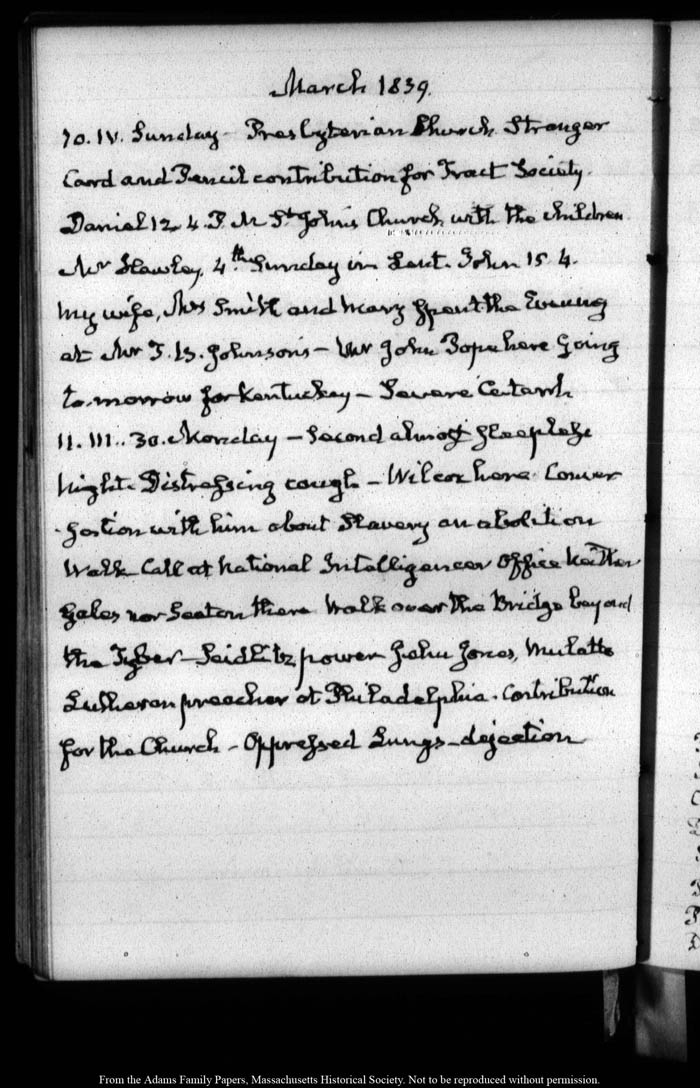 March 1839.
10. IV. Sunday – Presbyterian Church. Stranger
Card and Pencil contribution for Tract Society.
Daniel 12. 4. P. M St. John's Church with the children
Mr Hawley, 4th Sunday in Lent. John 15. 4.
My wife, Mrs Smith and Mary spent the Evening
at Mr T. B. Johnson's – Mr John Pope here Going
to-morrow for Kentucky – Severe Catarrh
11. III.. 30. Monday – Second almost sleepless
night. Distressing cough – Wilcox here. Conver
-sation with him about Slavery an abolition
Walk Call at National Intelligencer Office Neither
Gales nor Seaton there Walk over the Bridge beyond
the Tyber – Seidlitz power John Jones, Mulatto
Lutheran preacher at Philadelphia. Contribution
for the Church – Oppressed Lungs – dejection
From the Adams Family Papers, Massachusetts Historical Society. Not to be reproduced without permission.